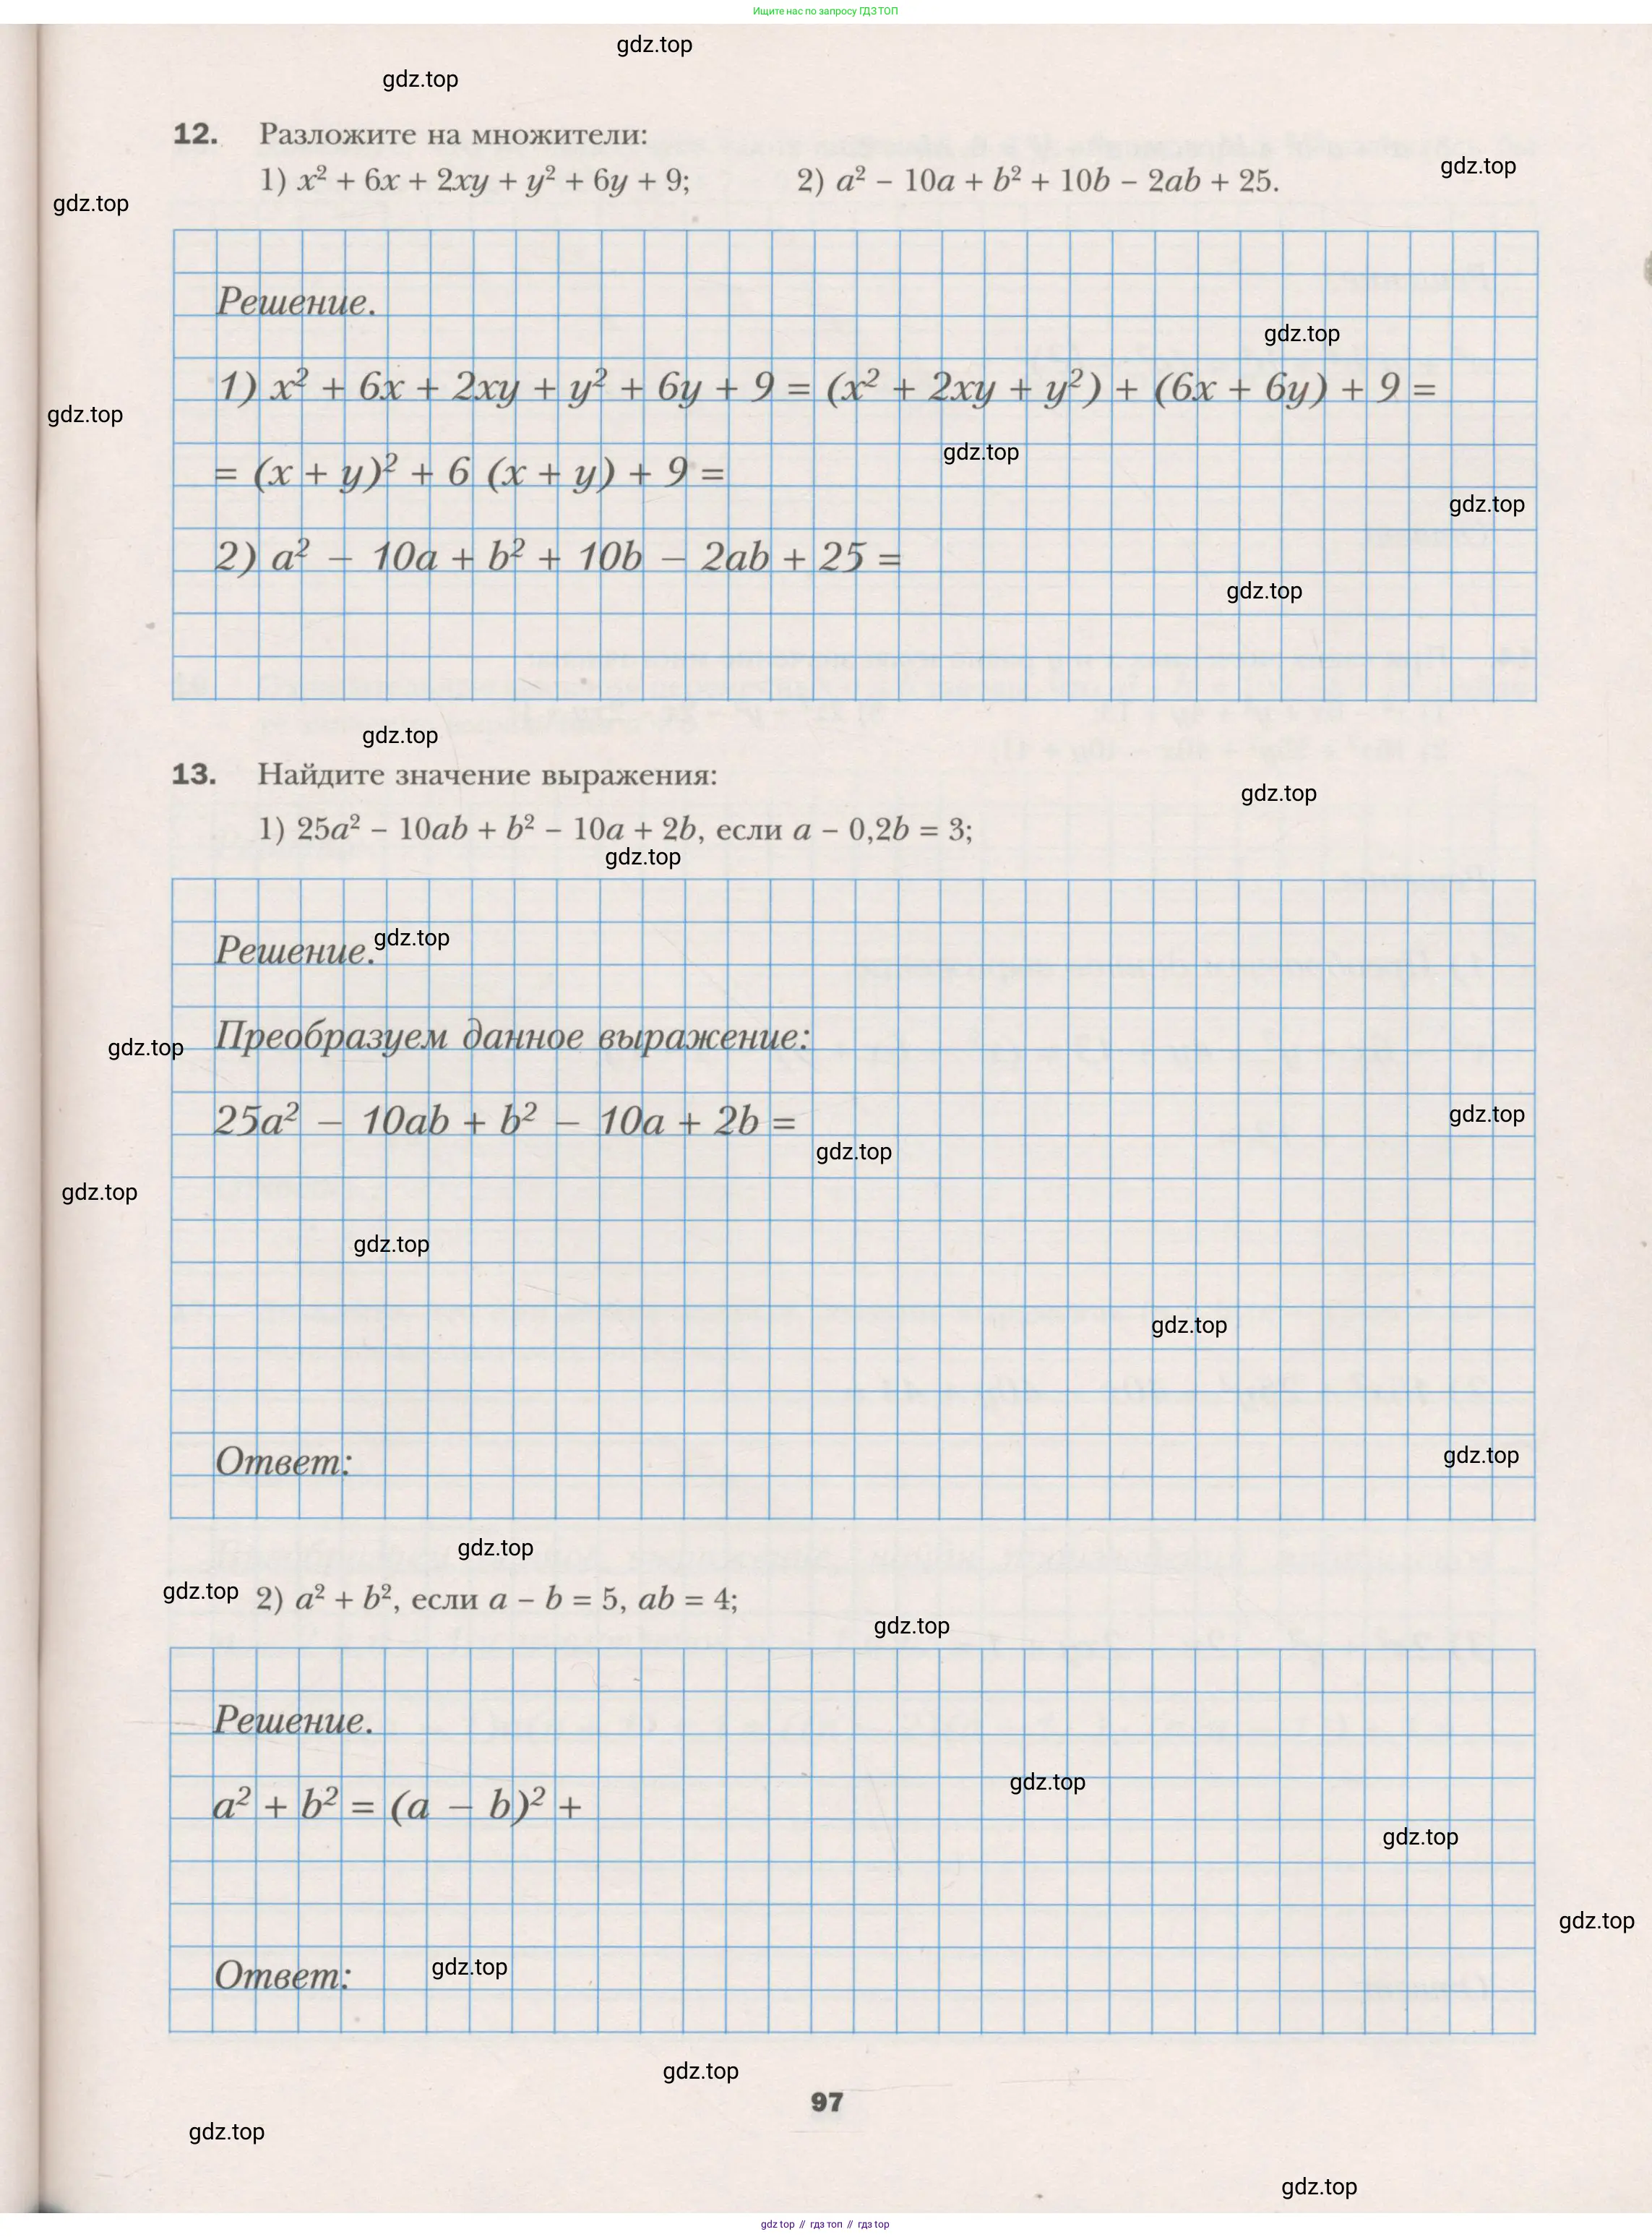 Ищите нас по запросу ГДЗ ТОП
gdz.top
gdz.top
12. Разложите на множители:
gdz.top
1) x² + 6x + 2xy + y² + 6y + 9; 2) a² − 10a + b² + 10b − 2ab + 25.
gdz.top
Решение.
gdz.top
1) x² + 6x + 2xy + y² + 6y + 9 = (x² + 2xy + y²) + (6x + 6y) + 9 =
gdz.top
gdz.top
= (x + y)² + 6 (x + y) + 9 =
gdz.top
2) a² − 10a + b² + 10b − 2ab + 25 =
gdz.top
gdz.top
13. Найдите значение выражения:
gdz.top
1) 25a² − 10ab + b² − 10a + 2b, если a − 0,2b = 3;
gdz.top
Решение.
gdz.top
Преобразуем данное выражение:
gdz.top
25a² − 10ab + b² − 10a + 2b =
gdz.top
gdz.top
gdz.top
gdz.top
gdz.top
Ответ:
gdz.top
gdz.top
gdz.top
2) a² + b², если a − b = 5, ab = 4;
gdz.top
Решение.
gdz.top
a² + b² = (a − b)² +
gdz.top
gdz.top
Ответ:
gdz.top
gdz.top
97
gdz.top
gdz.top
gdz top // гдз топ // гдз top